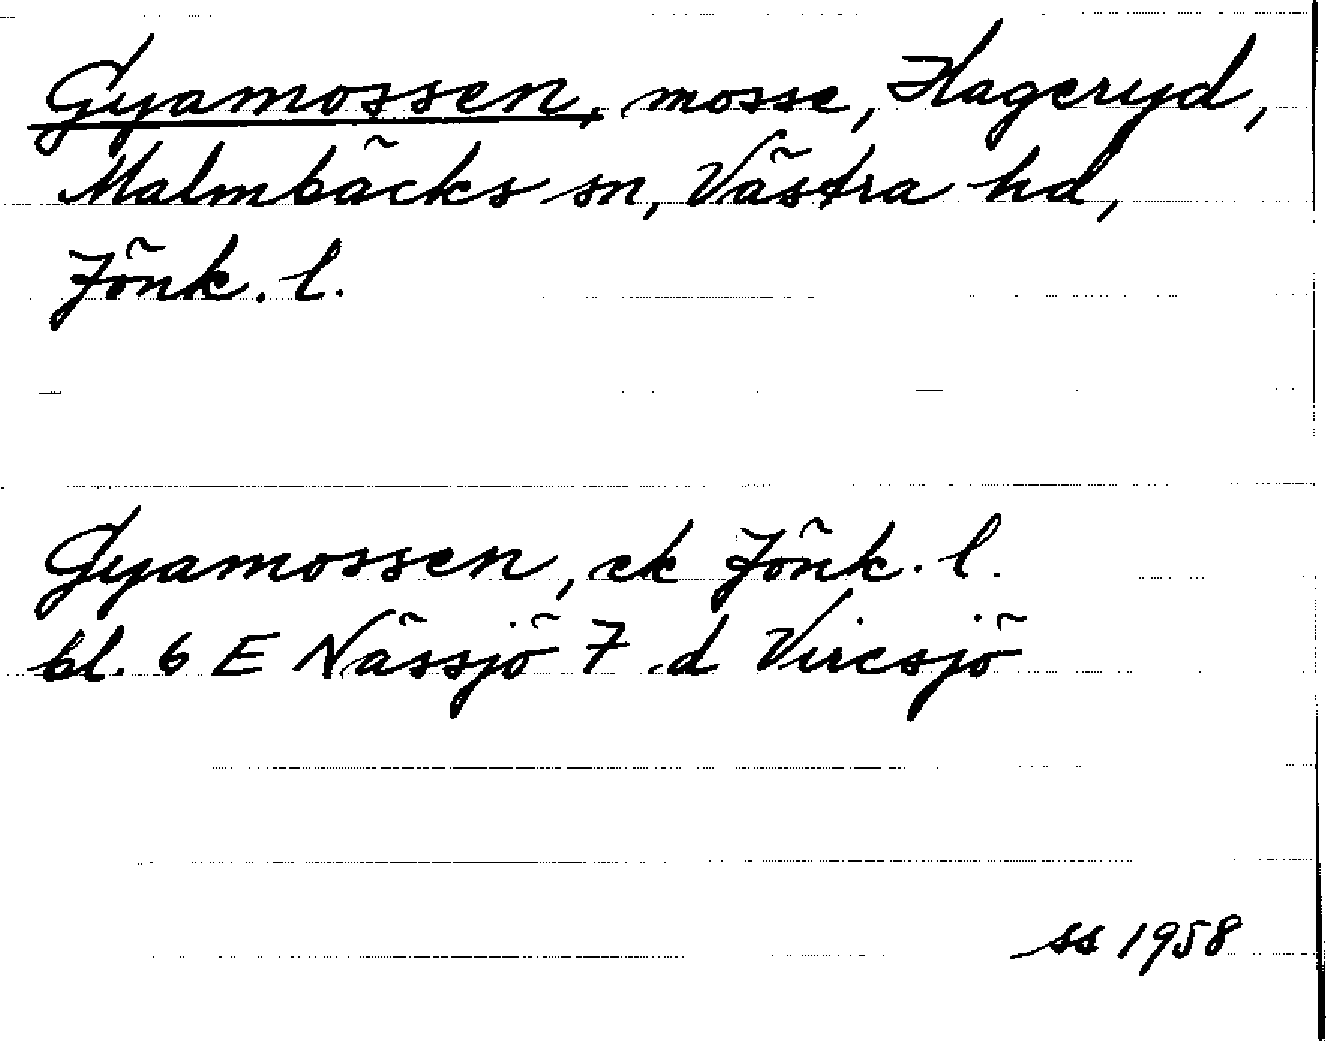 Gyamossen, mosse, Hageryd,
Malmbäcks sn, Västra hd,
Jönk. l.
Gyamossen, ek Jönk. l.
bl. 6 E Nässjö 7 d Viresjö
ss 1958